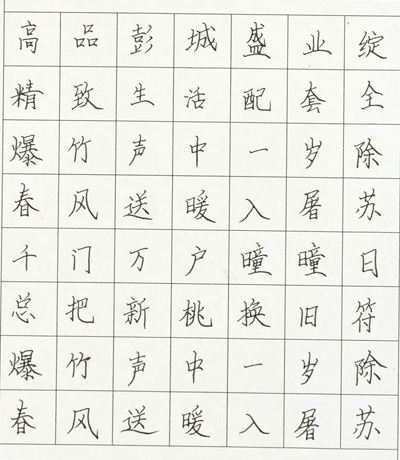 高品彭城盛业绽
精致生活配套全
爆竹声中一岁除
春风送暖入屠苏
千门万户曈曈日
总把新桃换旧符
爆竹声中一岁除
春风送暖入屠苏